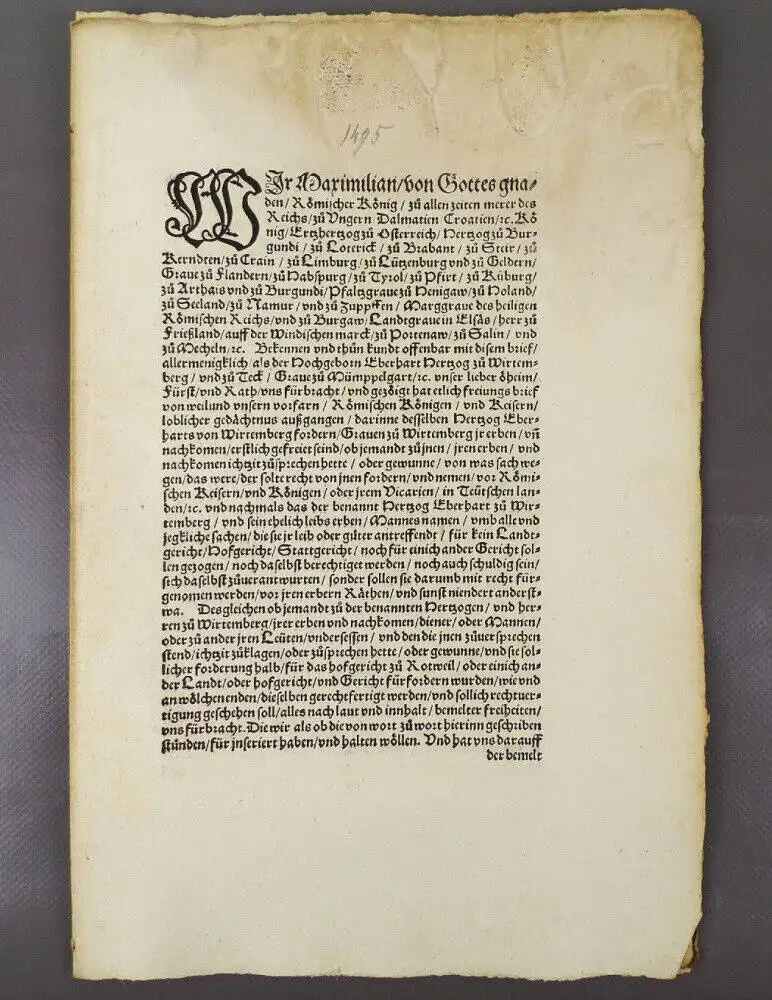 1495
WIr Maximilian/von Gottes gna⸗
den/ Römischer König/ zů allen zeiten merer des
Reichs/zů Vngern Dalmatien Croatien/ꝛc. Kö
nig/Ertzhertzog zů Osterreich/ Hertzog zů Bur⸗
gundi/ zů Loterick/ zů Brabant/ zů Steir/ zů
Kerndten/zů Crain/ zů Limburg/ zů Lützenburg vnd zů Geldern/
Graue zů Flandern/zů Habspurg/ zů Tyrol/ zů Pfirt/ zů Kůburg/
zů Arthais vnd zů Burgundi/Pfaltzgraue zů Henigaw/zů Holand/
zů Seeland/zů Namur/vnd zů Zupffen/ Marggraue des heiligen
Römischen Reichs/vnd zů Burgaw/Landtgraue in Elsäs/herr zů
Frießland/auff der Windischen marck/zů Portenaw/zů Salin/ vnd
zů Mecheln/ꝛc. Bekennen vnd thůn kundt offenbar mit disem brief/
allermenigklich/als der Hochgeborn Eberhart Hertzog zů Wirtem⸗
berg/ vnd zů Teck/ Graue zů Mümppelgart/ꝛc. vnser lieber öheim/
Fürst/vnd Rath/vns fürbracht/ vnd gezöigt hat etlich freiungs brief
von weilund vnsern vorfarn/ Römischen Königen/ vnd Keisern/
loblicher gedächtnus außgangen/ darinne desselben Hertzog Eber⸗
harts von Wirtemberg fordern/Grauen zů Wirtemberg jr erben/ vñ
nachkomen/erstlich gefreiet seind/ob jemandt zů jnen/ jren erben/ vnd
nachkomen ichtzit zůsprechen hette/ oder gewunne/ von was sach we⸗
gen/das were/der solte recht von jnen fordern/vnd nemen/vor Römi⸗
schen Keisern/vnd Königen/ oder jrem Vicarien/ in Teütschen lan⸗
den/ꝛc. vnd nachmals das der benannt Hertzog Eberhart zů Wir⸗
temberg/ vnd sein ehelich leibs erben/ Mannes namen/ vmb alle vnd
jegkliche sachen/die sie jr leib oder gůter antreffendt/ für kein Landt⸗
gericht/Hofgericht/Stattgericht/ noch für einich ander Gericht sol⸗
len gezogen/ noch daselbst berechtiget werden/ noch auch schuldig sein/
sich daselbst zůuerantwurten/ sonder sollen sie darumb mit recht für⸗
genomen werden/vor jren erbern Räthen/vnd sunst niendert anderst⸗
wa. Desgleichen ob jemandt zů der benannten Hertzogen/ vnd her⸗
ren zů Wirtemberg/jrer erben vnd nachkomen/diener/ oder Mannen/
oder zů ander jren Leüten/vndersessen/ vnd den die jnen zůuersprechen
stend/ichtzit zůklagen/oder zůsprechen hette/oder gewunne/vnd sie sol⸗
licher forderung halb/für das hofgericht zů Rotweil/oder einich an⸗
der Landt/oder hofgericht/vnd Gericht fürfordern wurden/wie vnd
an wölchen enden/dieselben gerechtfertigt werden/vnd sollich rechtuer⸗
tigung geschehen soll/alles nach laut vnd innhalt/bemelter freiheiten/
vns fürbracht. Die wir als ob die von wort zů wort hierinn geschriben
stünden/für jnseriert haben/vnd halten wöllen. Vnd hat vns darauff
der bemelt